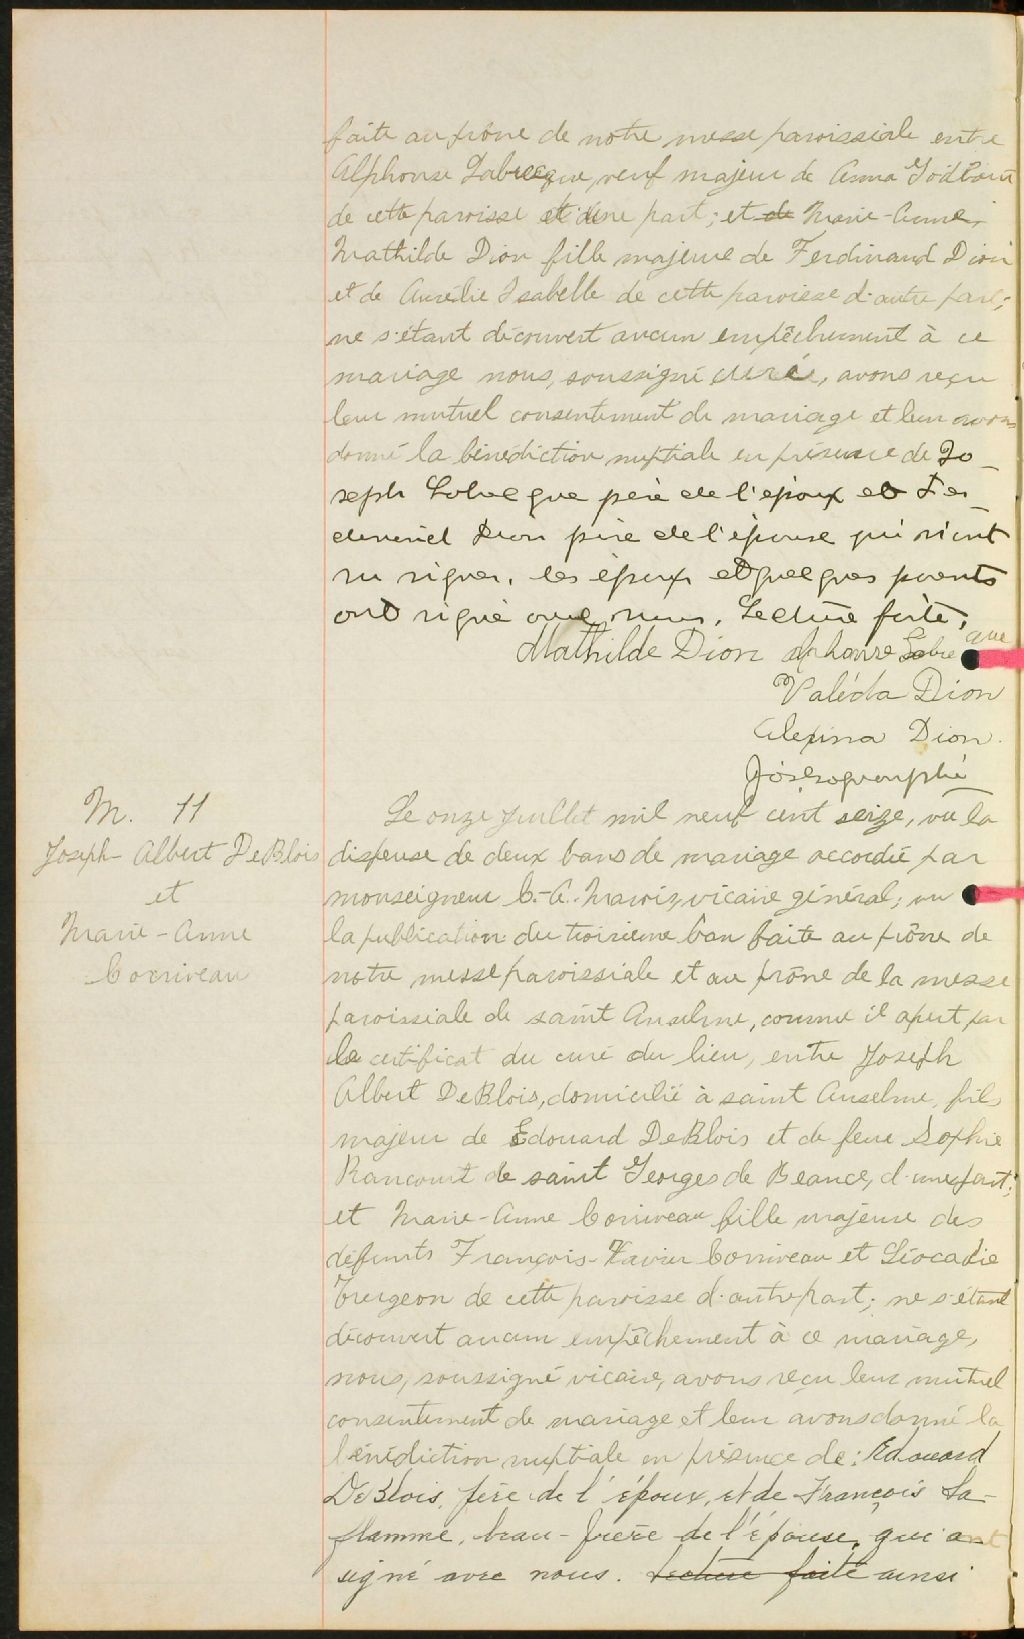 faite au prône de notre messe paroissiale entre
Alphonse Labrecque, veuf majeur de Anna Godbout
de cette paroisse d'une part; et de Marie-Anne
Mathilde Dion fille majeure de Ferdinand Dion
et de Aurélie Isabelle de cette paroisse d'autre part;
ne s'étant découvert aucun empêchement à ce
mariage nous, soussigné curé, avons reçu
leur mutuel consentement de mariage et leur avons
donné la bénédiction nuptiale en présence de Jo-
seph Labrecque père de l'époux et Fer
dinand Dion père de l'épouse qui n'ont
su signer, les époux et quelques parents
ont signé avec nous. Lecture faite,
Mathilde Dion Alphonse Labrecque
Valéda Dion
Alexina Dion
M. 11
Joseph-Albert DeBlois
et
Marie-Anne
Corriveau
Le onze juillet mil neuf cent seize, vu la
dispense de deux bans de mariage accordée par
monseigneur C.-A. Marois, vicaire général; vu
la publication du troisième ban faite au prône de
notre messe paroissiale et au prône de la messe
paroissiale de saint Anselme, comme il apert par
le certificat du curé du lieu, entre Joseph
Albert DeBlois, domicilié à saint Anselme, fils
majeur de Edouard DeBlois et de feue Sophie
Rancourt de saint Georges de Beauce, d'une part;
et Marie-Anne Corriveau fille majeure des
défunts François-Xavier Corriveau et Léocadie
Turgeon de cette paroisse d'autre part; ne s'étant
découvert aucun empêchement à ce mariage,
nous, soussigné vicaire, avons reçu leur mutuel
consentement de mariage et leur avons donné la
bénédiction nuptiale en présence de: Edouard
DeBlois, père de l'époux, et de François La-
flamme, beau-frère de l'épouse, qui ont
signé avec nous. Lecture faite ainsi